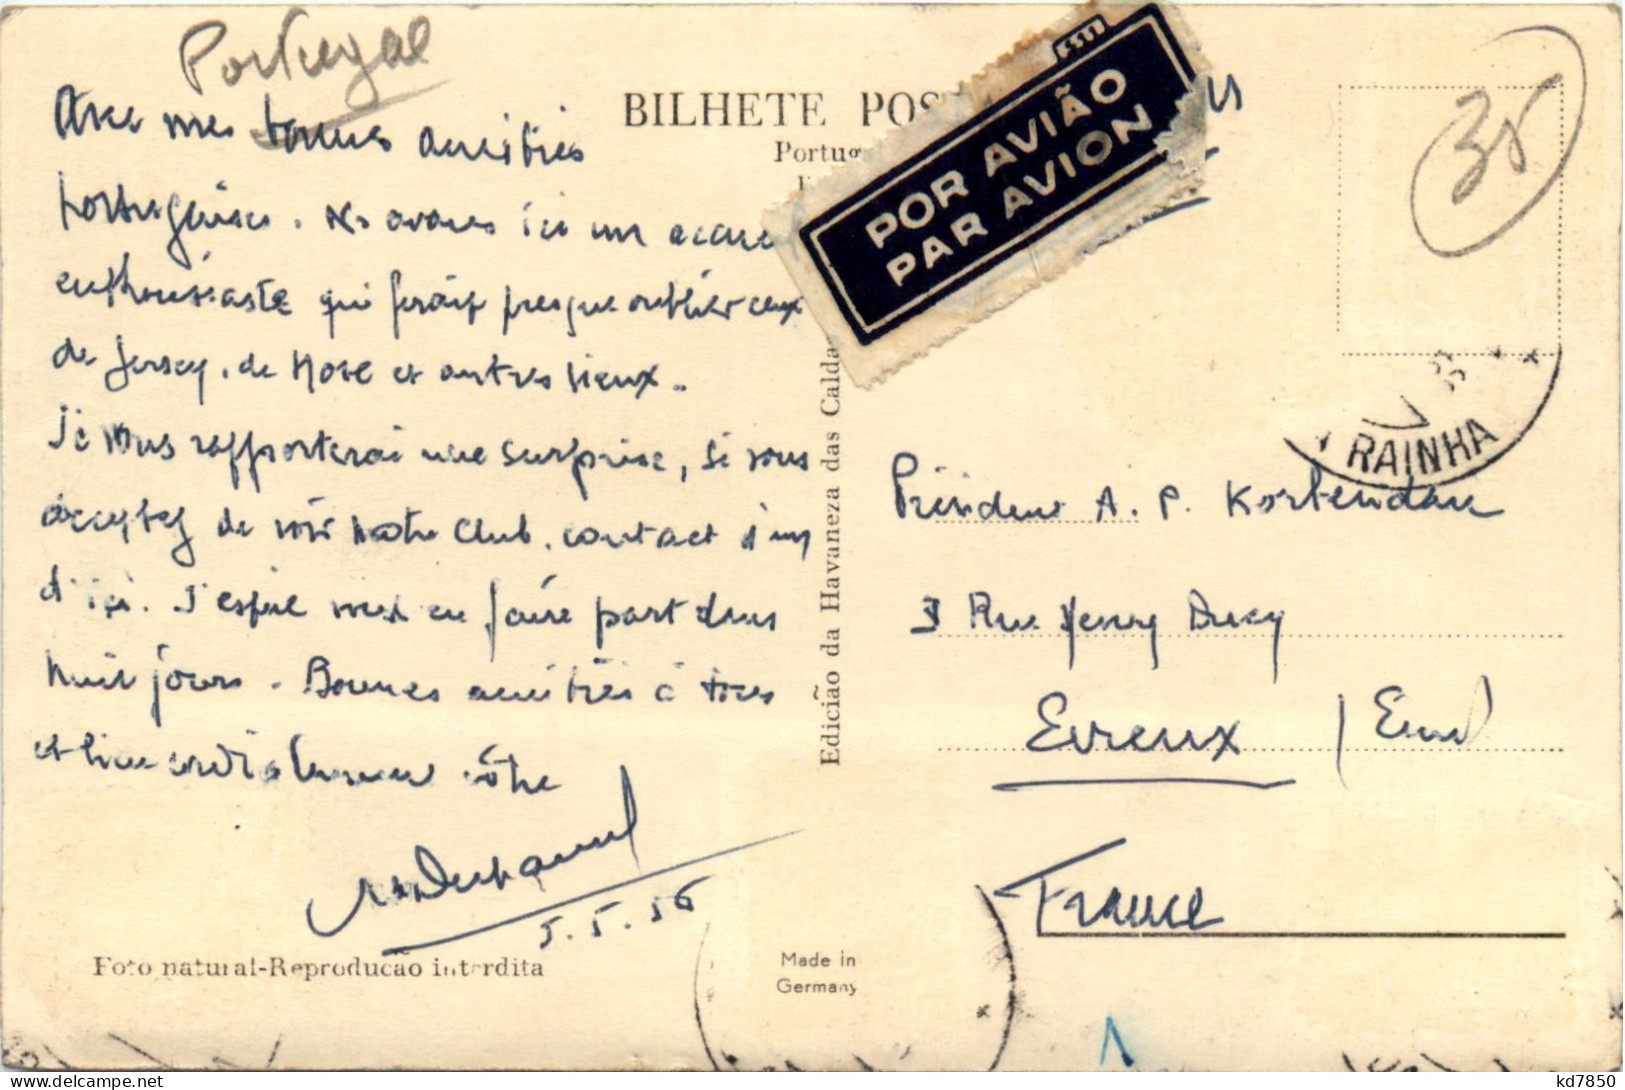 Portugal
Avec mes bonnes amitiés
portugaises. Ns avons ici un
enthousiaste qui ferait presque oublier ceux
de Jersey, de Hove et autres lieux.
Je vous rapporterai une surprise, si vous
acceptez de voir notre Club. contact d'un
d'ici. J'espère vous en faire part dans
huit jours. Bonnes amitiés à tous
et bien cordialement vôtre
5.5.56
Foto natural-Reproducão interdita
BILHETE
POR AVIÃO
PAR AVION
Edicião da Havaneza das Calda
Made in
Germany
35
RAINHA
Président A. P. Kortendau
3 Rue Henry Ducy
Evreux / Eure
France
kd7850